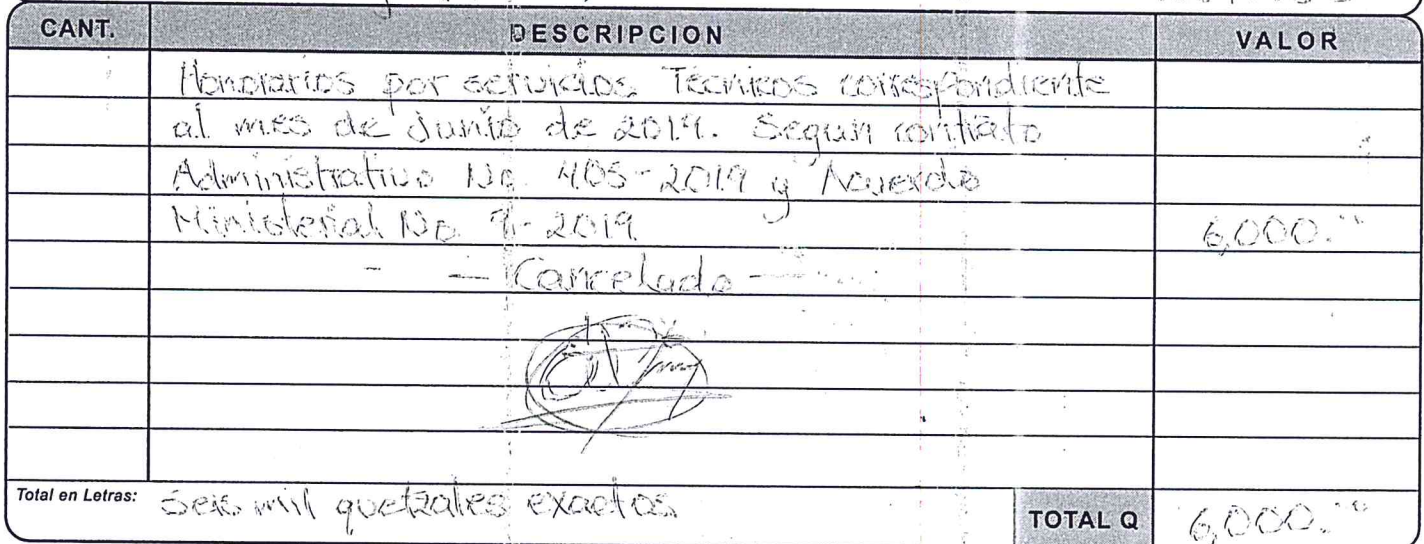 CANT. DESCRIPCION VALOR
Honorarios por servicios Técnicos correspondiente
al mes de Junio de 2019. Segun contrato
Administrativo No. 405-2019 y Acuerdo
Ministerial No. 9-2019 6,000.00
- — Cancelado —
Total en Letras: Seis mil quetzales exactos. TOTAL Q 6,000.00